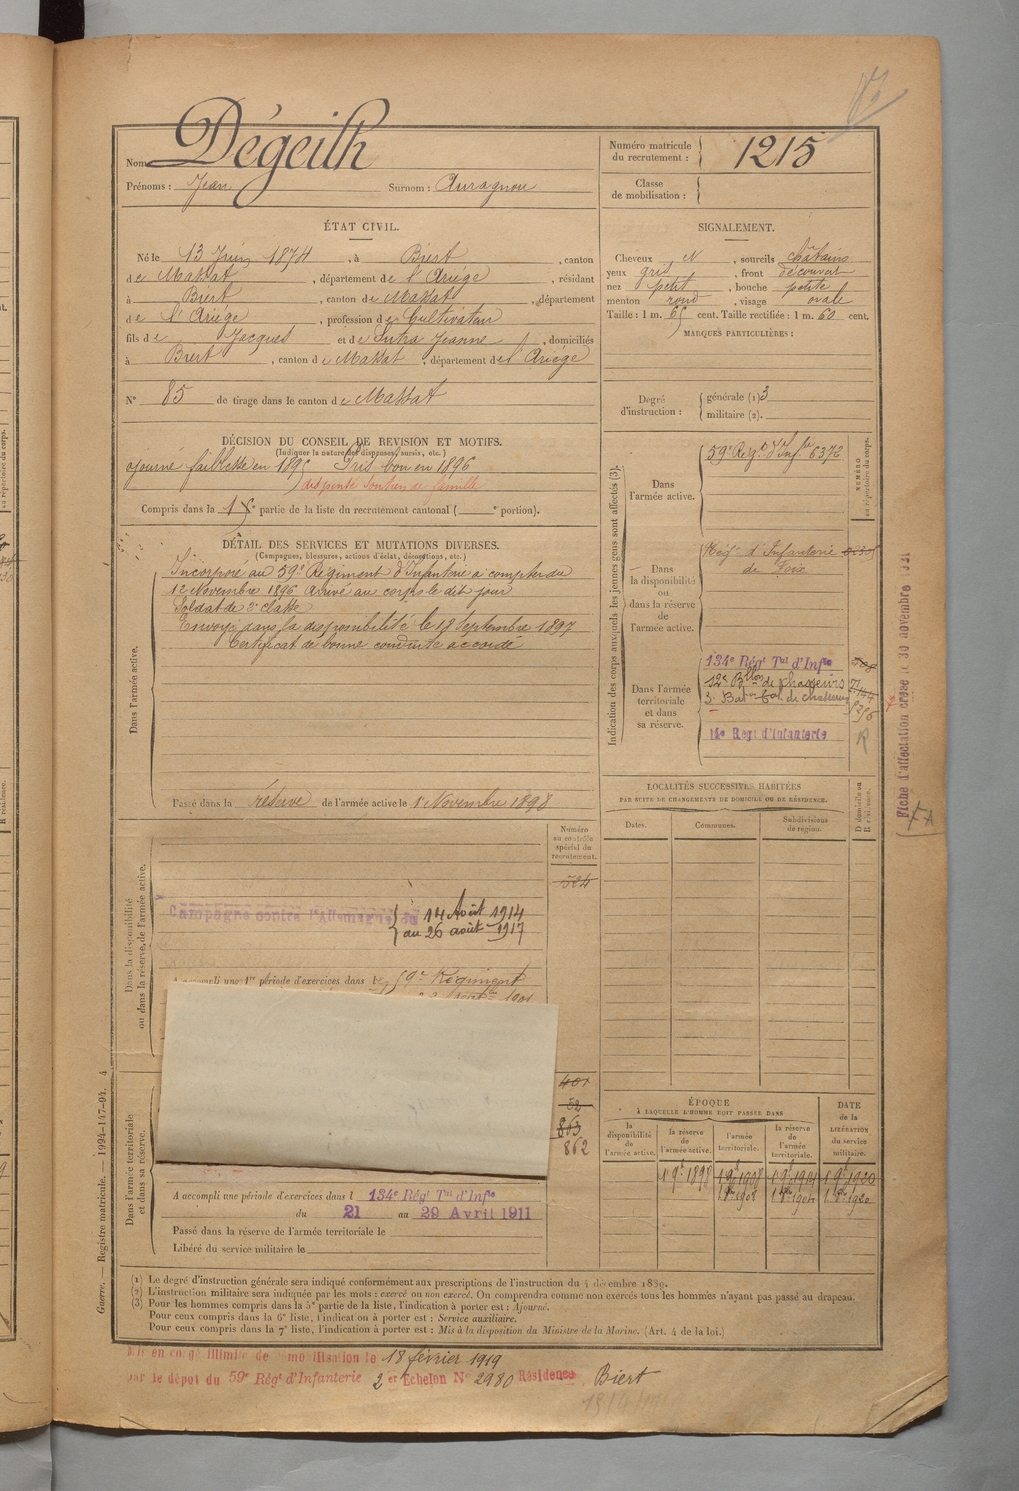 Nom Dégeilh
Prénoms : Jean Surnom : Auragnou
Numéro matricule
du recrutement : 1215
Classe
de mobilisation :
ÉTAT CIVIL.
Né le 13 Juin 1874, à Biert, canton
de Massat, département de l'Ariége, résidant
à Biert, canton de Massat, département
de l'Ariége, profession de Cultivateur
fils de Jacques et de Jeanne, domiciliés
à Biert, canton de Massat, département de l'Ariége
N° 85 de tirage dans le canton de Massat
SIGNALEMENT.
Cheveux N, sourcils châtains
yeux gris, front découvert
nez petit, bouche petite
menton rond, visage ovale
Taille : 1 m. 65 cent. Taille rectifiée : 1 m. 60 cent.
MARQUES PARTICULIÈRES :
Degré
d'instruction :
générale (1) 3
militaire (2).
DÉCISION DU CONSEIL DE REVISION ET MOTIFS.
(Indiquer la nature des dispenses, sursis, etc.)
ajourné faiblesse en 1895 Pris bon en 1896
dispensé soutien de famille
Compris dans la 1e partie de la liste du recrutement cantonal ( e portion).
DÉTAIL DES SERVICES ET MUTATIONS DIVERSES.
(Campagnes, blessures, actions d'éclat, décorations, etc.)
Dans l'armée active.
Incorporé au 59e Régiment d'Infanterie à compter du
Novembre 1896 Arrivé au corps le dit jour
Soldat de 2e classe
Envoyé dans la disponibilité le 18 Septembre 1897
Certificat de bonne conduite accordé
Passé dans la réserve de l'armée active le 1 Novembre 1898
Indication des corps auxquels les jeunes gens sont affectés (3).
NUMÉRO
au répertoire du corps.
Dans
l'armée active.
59e Régt d'Infie 6372
Dans
la disponibilité
ou
dans la réserve
de
l'armée active.
Régt d'Infanterie
de Foix
Dans l'armée
territoriale
et dans
sa réserve.
134e Régt Tal d'Infie
12e Bllon de chasseurs
3e de chasseurs
14e Régt d'Infanterie
R
Fiche d'affectation créée le 30 novembre
LOCALITÉS SUCCESSIVES HABITÉES
PAR SUITE DE CHANGEMENTS DE DOMICILE OU DE RÉSIDENCE.
Dates.
Communes.
Subdivisions
de région.
D domicile ou
R résidence.
Numéro
au contrôle
spécial du
recrutement.
Dans la disponibilité
ou dans la réserve de l'armée active.
Campagne contre l'Allemagne du 14 Août 1914
au 26 août 1917
A accompli une 1re période d'exercices dans le 59e Régiment
1901
Dans l'armée territoriale
et dans sa réserve.
52
863
862
A accompli une période d'exercices dans l 134e Régt Tal d'Infie
du 21 au 29 Avril 1911
Passé dans la réserve de l'armée territoriale le
Libéré du service militaire le
ÉPOQUE
À LAQUELLE L'HOMME DOIT PASSER DANS
la
disponibilité
de
l'armée active.
la réserve
de
l'armée active.
l'armée
territoriale.
la réserve
de
l'armée
territoriale.
DATE
de la
LIBÉRATION
du service
militaire.
(1) Le degré d'instruction générale sera indiqué conformément aux prescriptions de l'instruction du 4 décembre 1889.
(2) L'instruction militaire sera indiquée par les mots : exercé ou non exercé. On comprendra comme non exercés tous les hommes n'ayant pas passé au drapeau.
(3) Pour les hommes compris dans la 5e partie de la liste, l'indication à porter est : Ajourné.
Pour ceux compris dans la 6e liste, l'indication à porter est : Service auxiliaire.
Pour ceux compris dans la 7e liste, l'indication à porter est : Mis à la disposition du Ministre de la Marine. (Art. 4 de la loi.)
Guerre. — Registre matricule. — 1994-147-94. 4
Mis en congé illimité de démobilisation le 18 février 1919
par le dépôt du 59e Régt d'Infanterie 2 Echelon N° 2980 Résidence Biert